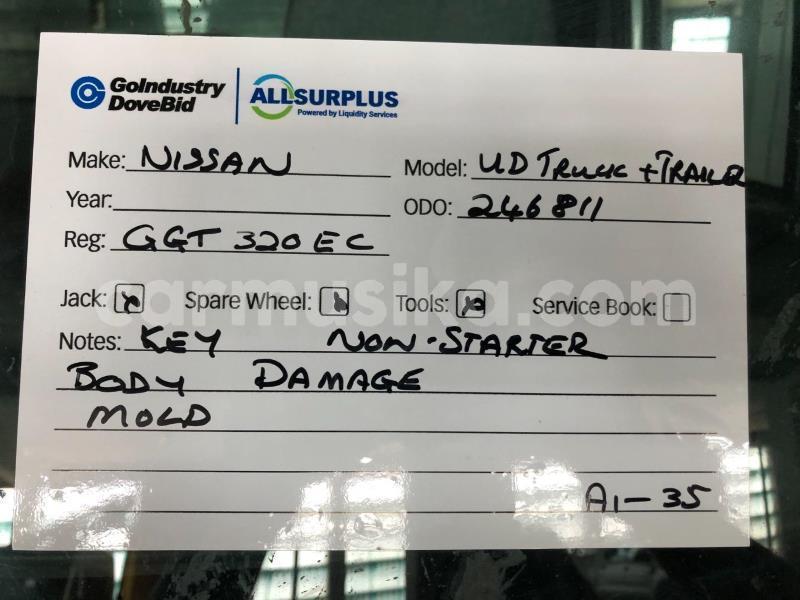 GoIndustry DoveBid ALLSURPLUS
Powered by Liquidity Services
Make: NISSAN Model: UD TRUCK + TRAILER
Year: ODO: 246811
Reg: GGT 320 EC
Jack: x Spare Wheel: Tools: Service Book:
carmusika.com
Notes: KEY NON-STARTER
BODY DAMAGE
MOLD
A1-35